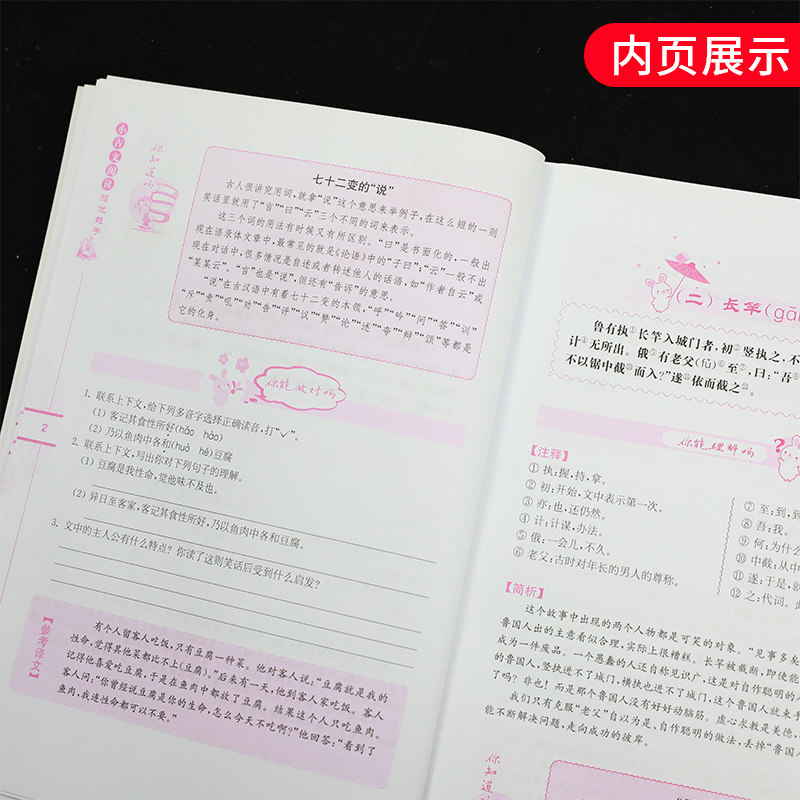 内页展示
小古文阅读
提优能手
你知道吗
七十二变的“说”
古人很讲究用词，就拿“说”这个意思来举例子，在这么短的一则
笑话里就用了“言”“曰”“云”三个不同的词来表示。
这三个词的用法有时候又有所区别。“曰”是书面化的，一般出
现在语录体文章中，最常见的就是《论语》中的“子曰”；“云”一般不出
现在对话中，很多情况是自述或者转述他人的话语，如“作者自云”或
“某某云”。“言”也是“说”，但还有“告诉”的意思。
“说”在古汉语中有着七十二变的本领，“呼”“吟”“问”“答”“训”
“斥”“责”“吼”“劝”“告”“评”“议”“赞”“论”“述”“奇”“辩”“颂”等都是
它的化身。
你能做对吗
1. 联系上下文，给下列多音字选择正确读音，打“✓”。
(1) 客记其食性所好(hǎo hào)
(2) 乃以鱼肉中各和(huò hé)豆腐
2. 联系上下文，写出你对下列句子的理解。
(1) 豆腐是我性命，觉他味不及也。
(2) 异日至客家，客记其食性所好，乃以鱼肉中各和豆腐。
3. 文中的主人公有什么特点？你读了这则笑话后受到什么启发？
2
【参考译文】
有个人留客人吃饭，只有豆腐一种菜。他对客人说：“豆腐就是我的
性命，觉得其他菜都比不上(豆腐)。”后来有一天，他到客人家吃饭。客人
记得他喜爱吃豆腐，于是在鱼肉中都放了豆腐。结果这个人只吃鱼肉。
客人问：“你曾经说豆腐是你的生命，怎么今天不吃啊？”他回答：“看到了
鱼肉，我连性命都可以不要。”
（二）长竿(gān
鲁有执①长竿入城门者，初②竖执之，不
计④无所出。俄⑤有老父(fǔ)⑥至⑦，曰：“吾⑧
不以锯中截⑩而入？”遂⑪依而截之⑫。
你能理解吗
【注释】
① 执：握，持，拿。
② 初：开始，文中表示第一次。
③ 亦：也，还仍然。
④ 计：计谋，办法。
⑤ 俄：一会儿，不久。
⑥ 老父：古时对年长的男人的尊称。
⑦ 至：到，到
⑧ 吾：我。
⑨ 何：为什么
⑩ 中截：从中
⑪ 遂：于是，就
⑫ 之：代词。
【简析】
这个故事中出现的两个人物都是可笑的对象。“见事多矣
鲁国人出的主意看似合理，实际上很糟糕。长竿被截断，即使能
成为一件废品。一个愚蠢的人还自称见识广，这是对自作聪明的人
的鲁国人，竖执进不了城门，横执也进不了城门，这个鲁国人就束手
了吗？非也！而是那个鲁国人没有好好动脑筋。虚心求教是美德、
我们只有克服“老父”自以为是、自作聪明的做法，丢掉“鲁国人
能不断解决问题，走向成功的彼岸。
你知道